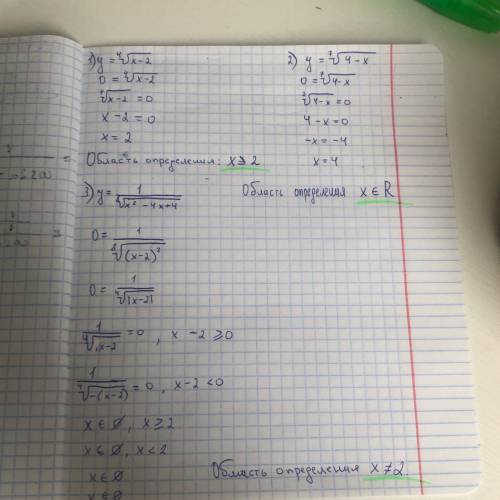 1) y = ⁴√(x-2)
0 = ⁴√(x-2)
⁴√(x-2) = 0
x - 2 = 0
x = 2
Область определения: x ⩾ 2
2) y = ⁷√(4-x)
0 = ⁷√(4-x)
⁷√(4-x) = 0
4 - x = 0
-x = -4
x = 4
Область определения x ∈ R
3) y = 1/⁸√(x² - 4x + 4)
0 = 1/⁸√((x-2)²)
0 = 1/⁴√|x-2|
1/⁴√(x-2) = 0, x - 2 ⩾ 0
1/⁴√(-(x-2)) = 0, x - 2 < 0
x ∈ ∅, x ⩾ 2
x ∈ ∅, x < 2
x ∈ ∅
x ∈ ∅
Область определения x ≠ 2